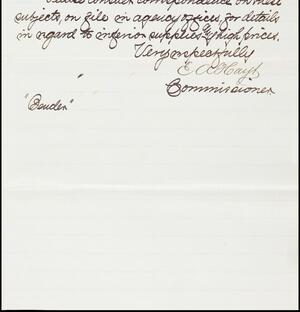 consult correspondence on these
subjects, on file in agency offices, for details
in regard to inferior supplies & high prices.
Very respectfully
E A Hayt
Commissioner